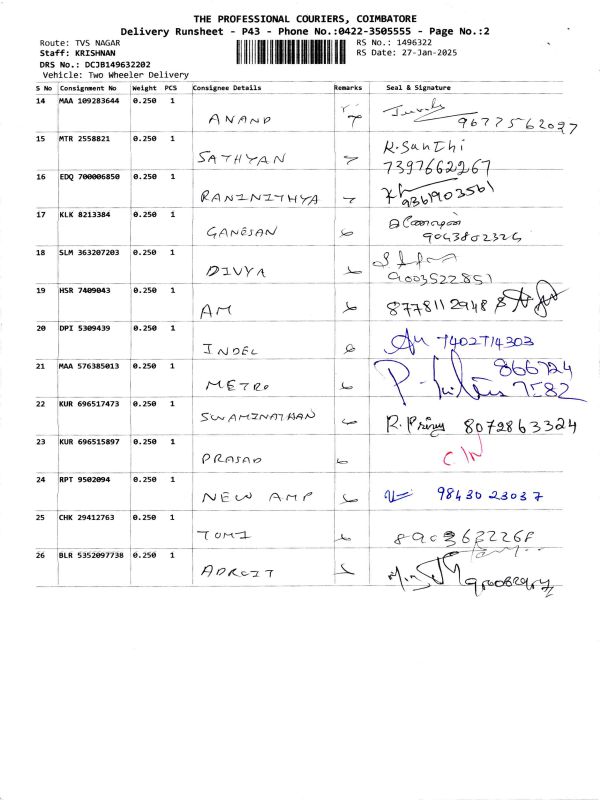 THE PROFESSIONAL COURIERS, COIMBATORE
Delivery Runsheet - P43 - Phone No.:0422-3505555 - Page No.:2
Route: TVS NAGAR RS No.: 1496322
Staff: KRISHNAN RS Date: 27-Jan-2025
DRS No.: DCJB149632202
Vehicle: Two Wheeler Delivery
S No Consignment No Weight PCS Consignee Details Remarks Seal & Signature
14 MAA 109283644 0.250 1 ANAND 7 9677562097
15 MTR 2558821 0.250 1 SATHYAN 7 K.Santhi
7397662267
16 EDQ 700006850 0.250 1 RANINITHYA 7 9361903561
17 KLK 8213384 0.250 1 GANGSAN 6
9043802324
18 SLM 363207203 0.250 1 DIVYA 6
9003522851
19 HSR 7409043 0.250 1 AM 6 8778112948
20 DPI 5309439 0.250 1 INDEL 6 7402714303
21 MAA 576385013 0.250 1 METRO 6 866724
7582
22 KUR 696517473 0.250 1 SWAMINATHAN 6 R. Priny 8072863324
23 KUR 696515897 0.250 1 PRASAD 6 C/N
24 RPT 9502094 0.250 1 NEW AMP 6 9843023037
25 CHK 29412763 0.250 1 TOMI 6 8903632268
26 BLR 5352097738 0.250 1 ADROIT 6